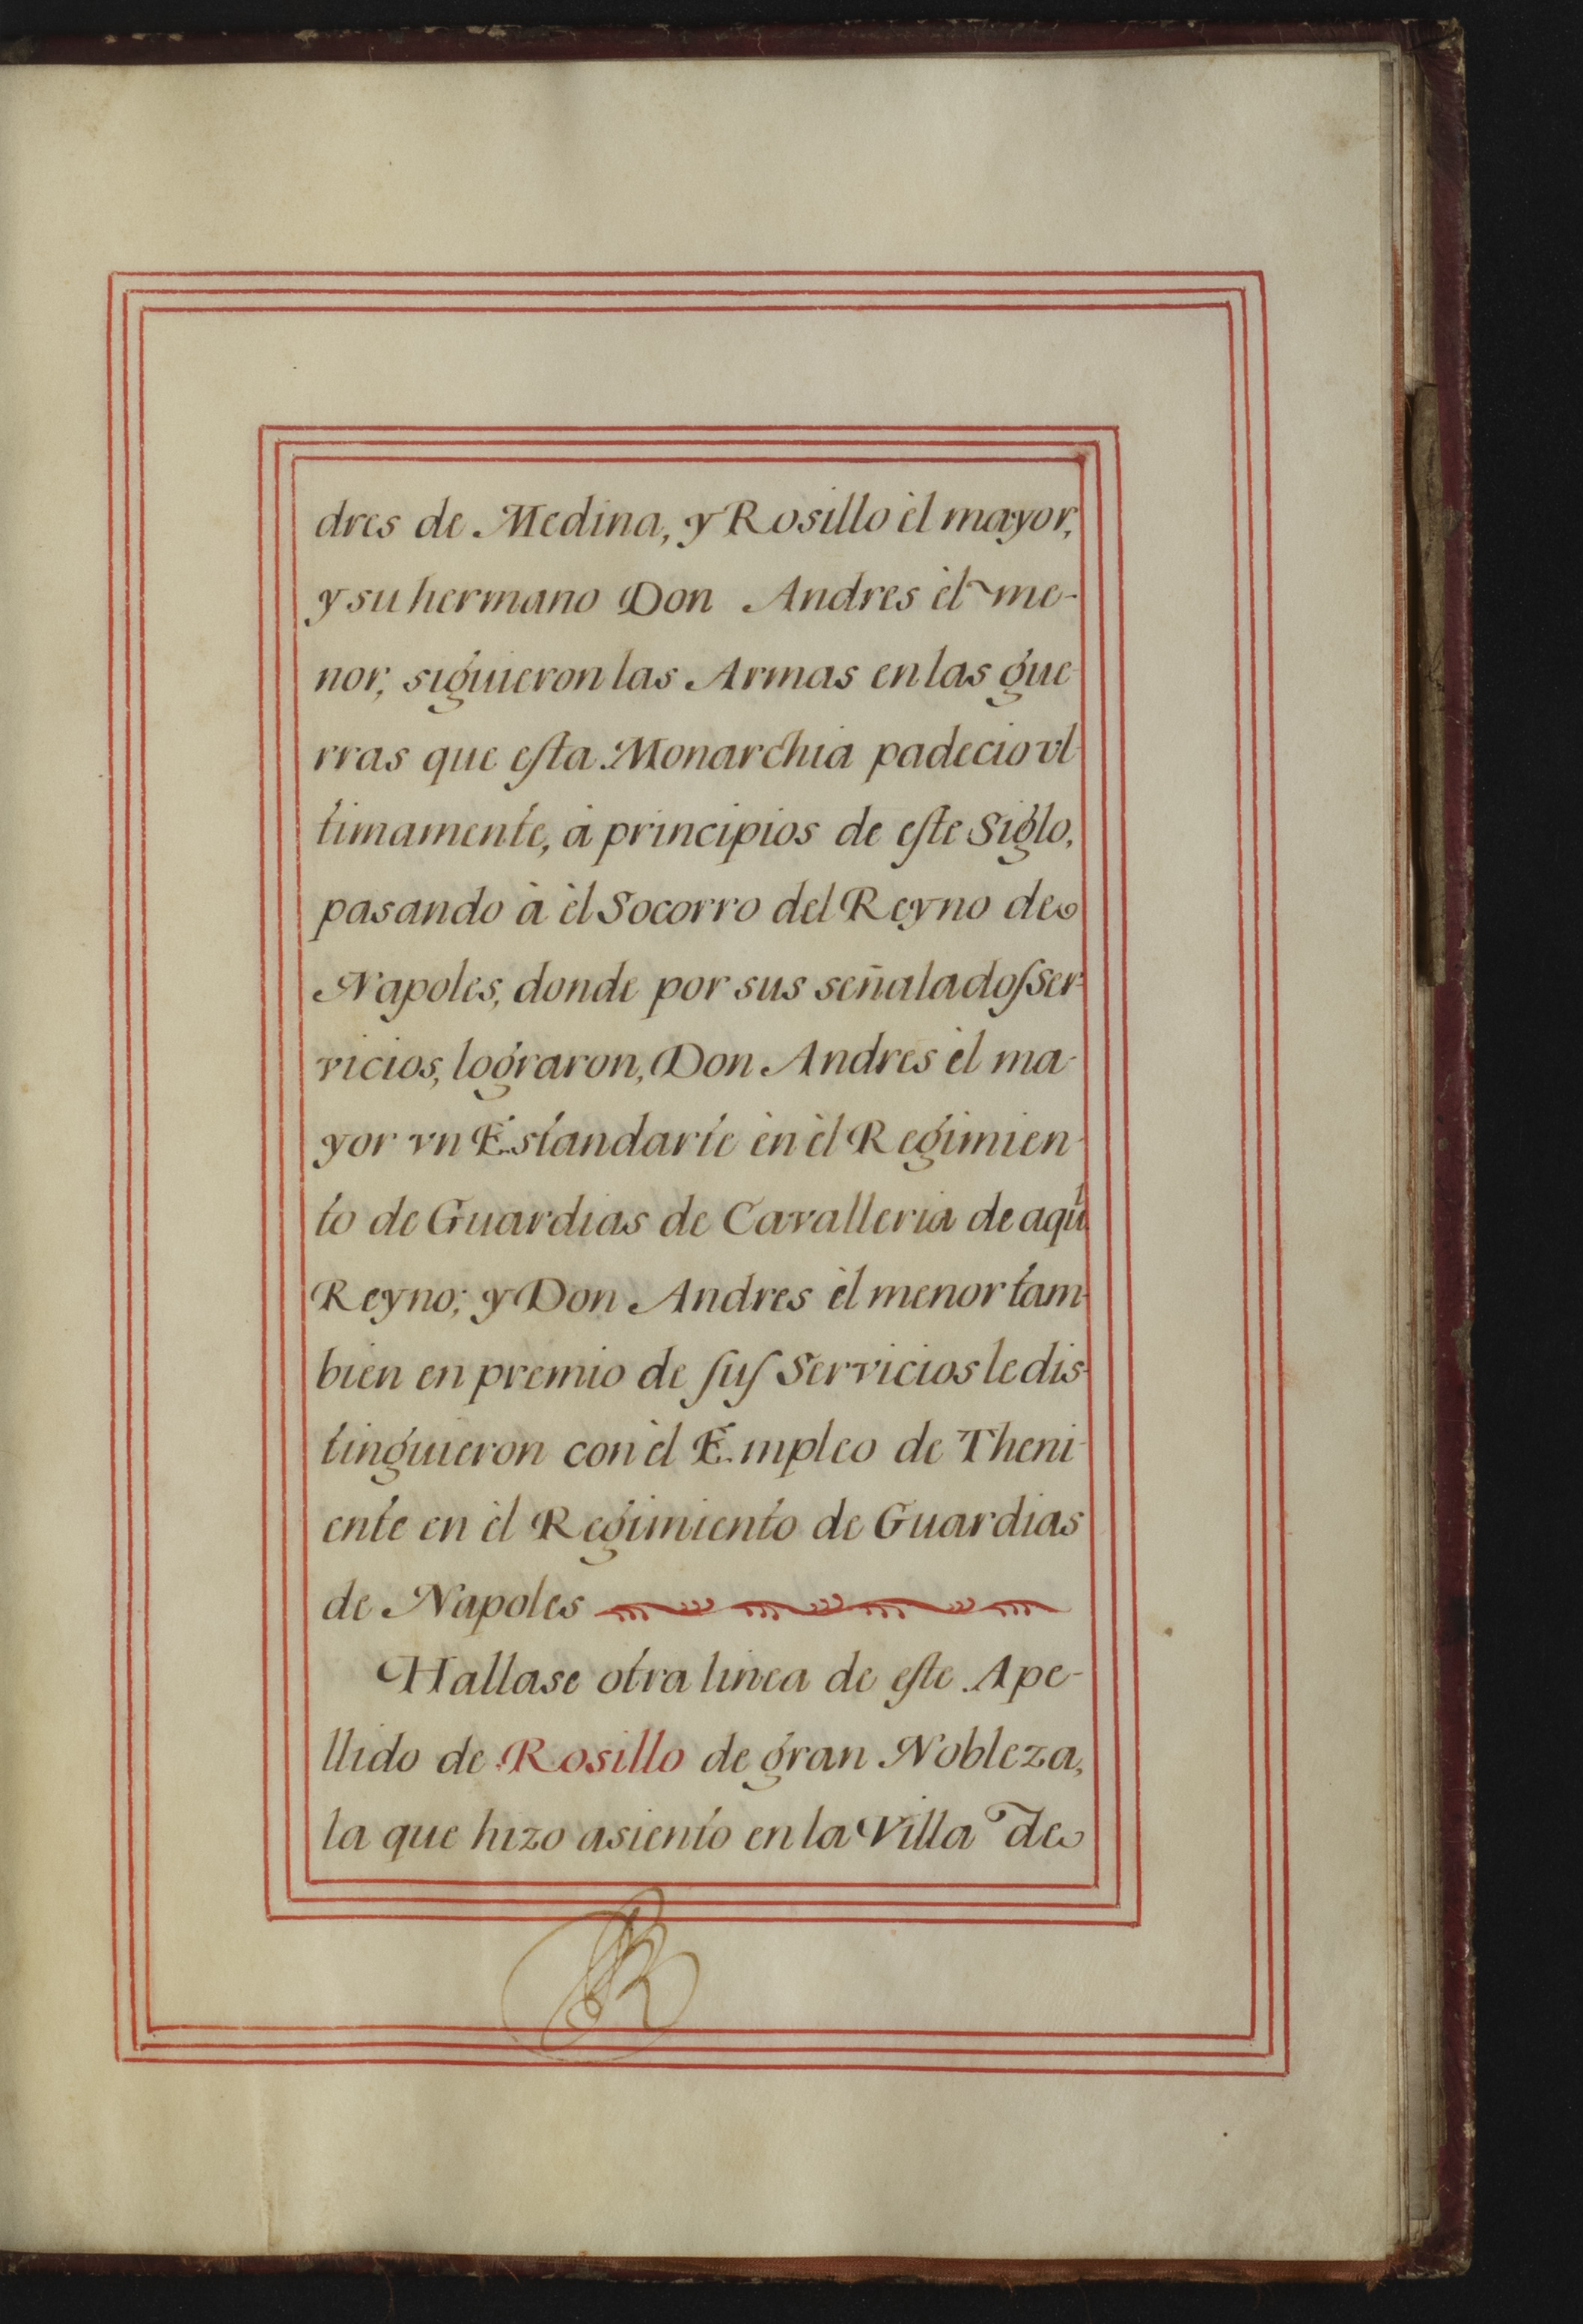 dres de Medina, y Rosillo èl mayor,
y su hermano Don Andres èl me-
nor, siguieron las Armas en las gue-
rras que eſta Monarchia padecio vl-
timamente, à principios de eſte Siglo,
pasando à èl Socorro del Reyno de
Napoles, donde por sus señaladoſ Ser-
vicios, lograron, Don Andres èl ma-
yor vn Estandarte èn èl Regimien-
to de Guardias de Cavalleria de aqł
Reyno; y Don Andres èl menor tam-
bien en premio de ſuſ Servicios le dis-
tinguieron con èl Empleo de Theni-
ente en èl Regimiento de Guardias
de Napoles
Hallase otra linea de eſte Ape-
llido de Rosillo de gran Nobleza,
la que hizo asiento en la Villa de